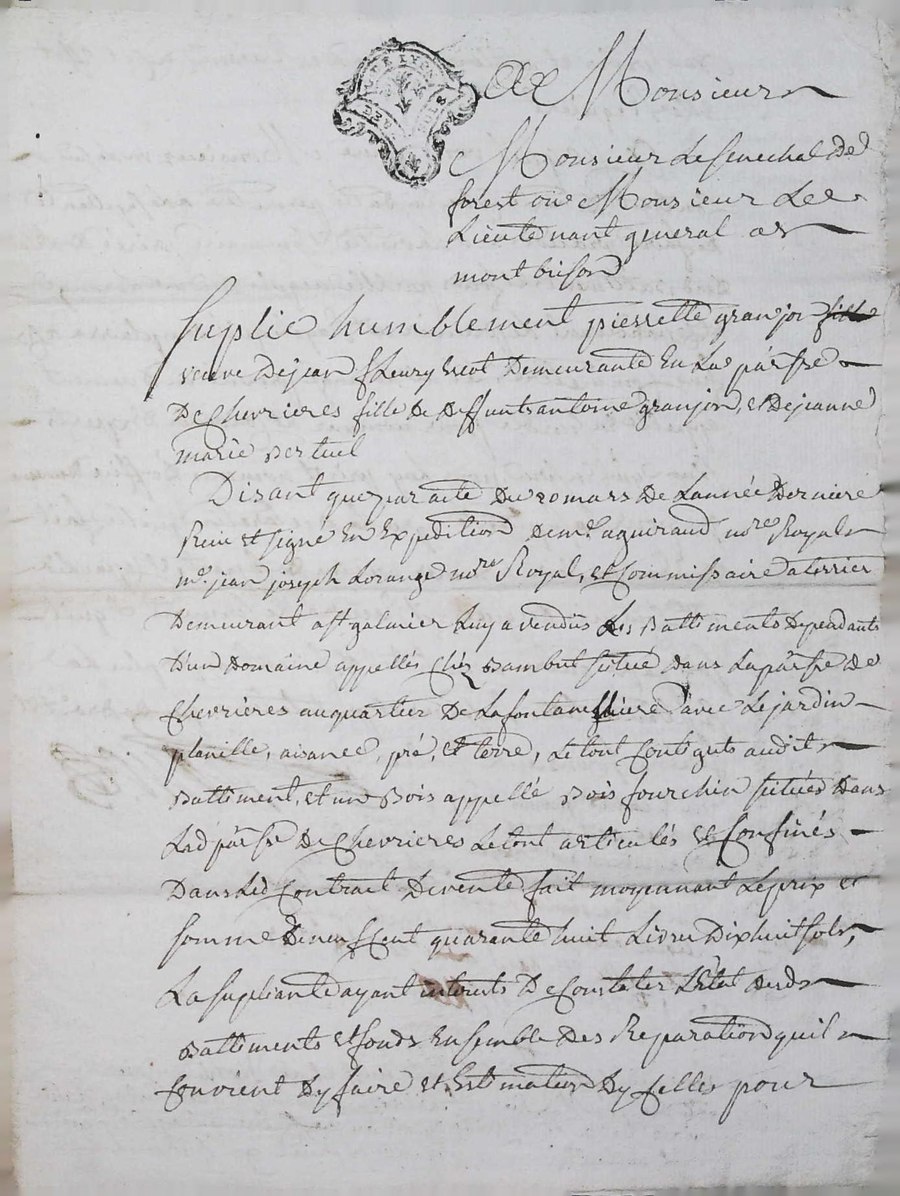 A Monsieur
Monsieur Le Senechal De
forest ou Monsieur Le
Lieutenant general a
montbrison
Suplie humblement pierrette granjon fille
veuve De jean fleury Demeurante En La parsse
De Chevrieres fille De Deffunt antoine granjon, et De jeanne
marie
Disant que par acte Du 20 mars De Lannée Derniere
Reçu et signé En Expedition De me. aguiraud nore Royal
me. jean joseph Lorange nore Royal, et Commissaire a terrier
Demeurant a st galmier Luy a vendus Les Battiments Dependants
D'un Domaine appellés Chez Bambut situé dans La parsse De
Chevrieres au quartier De La avec Le jardin
planille, aisance, pré, et terre, Le tout Contiguts audit
Battiment, et un Bois appellé Bois fourchin situés Dans
Lad parsse De Chevrieres Le tout articulés et Confinés
Dans Led Contract De vente fait moyennant Le prix et
somme De neuf Cent quarante huit Livres Dix huit sols,
La supliante ayant interets De Constater L'Etat desd
Battiments et fonds Ensemble Des Reparation quil
Convient Dy faire et Estimation Dy Celles pour